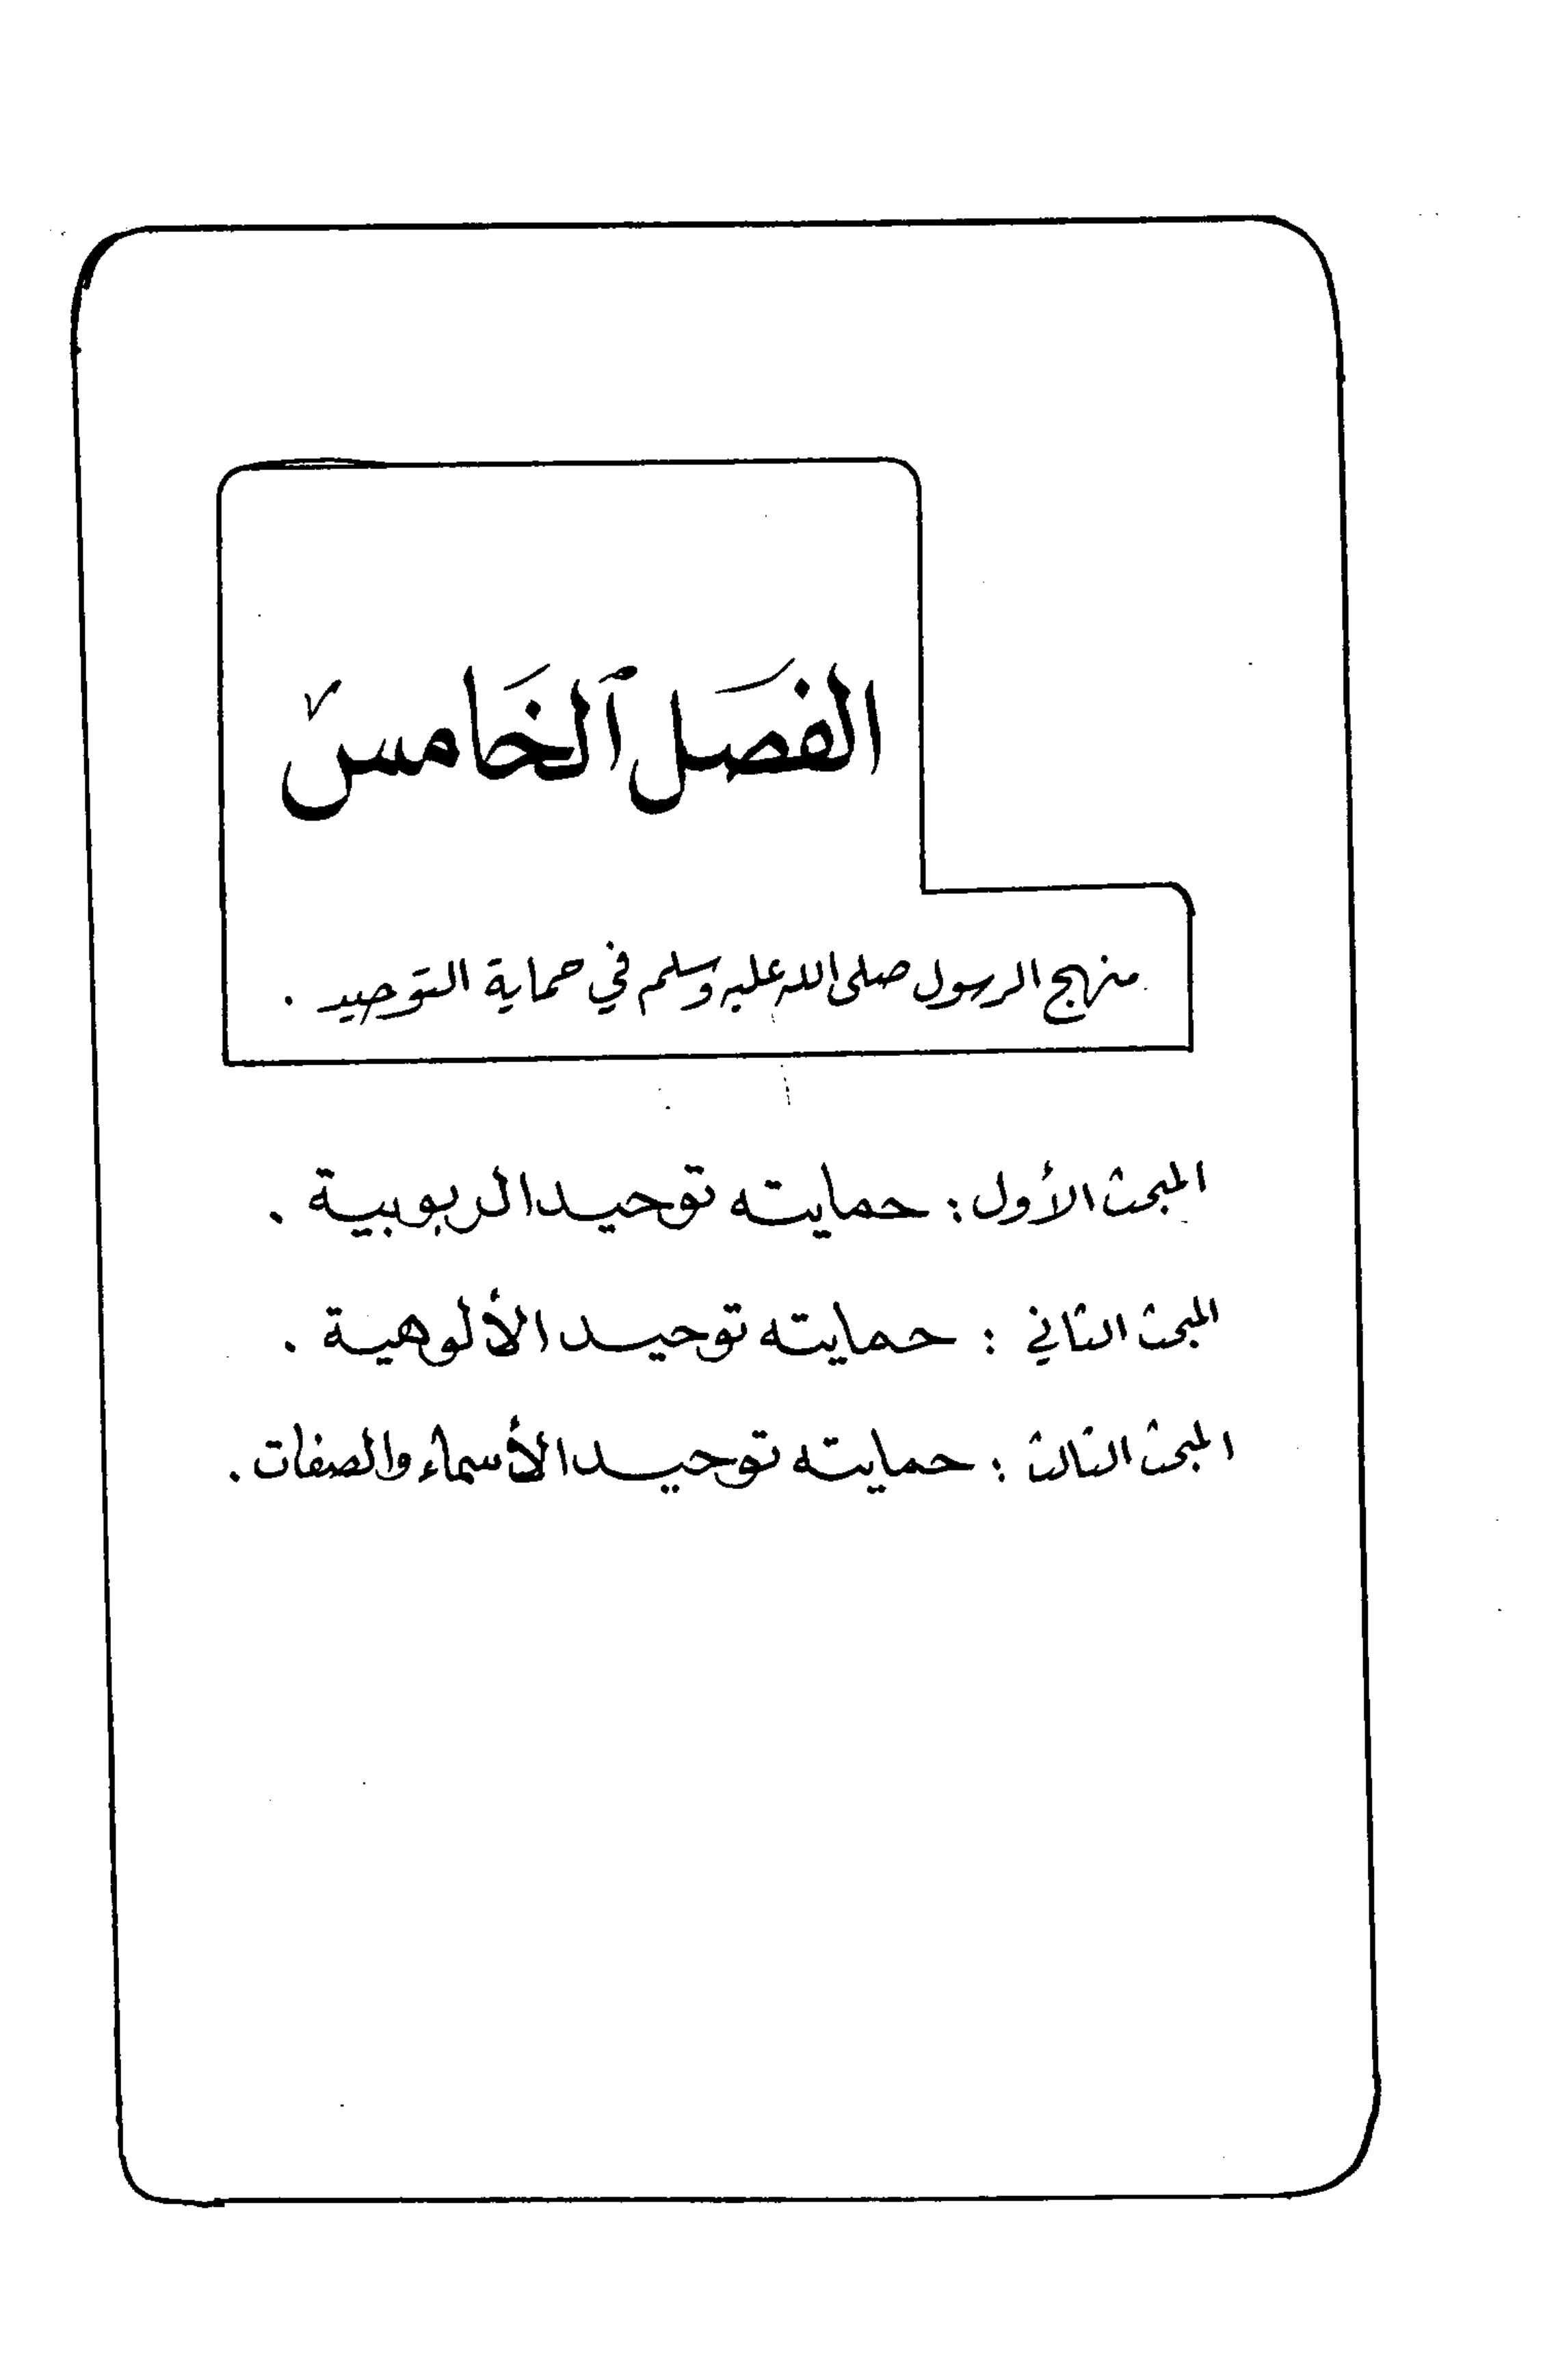 الفصَل ٱلخَامسْ
منهج الرسول صلى الله عليه وسلم في حماية التوحيد .
المبحث الأول : حمايته توحيد الربوبية .
المبحث الثاني : حمايته توحيد الألوهية .
المبحث الثالث : حمايته توحيد الأسماء والصفات .